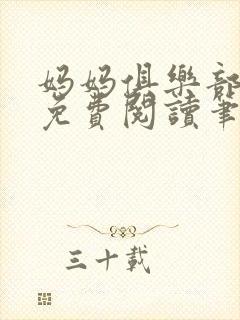 媽媽俱樂部
免費閱讀筆
三十載